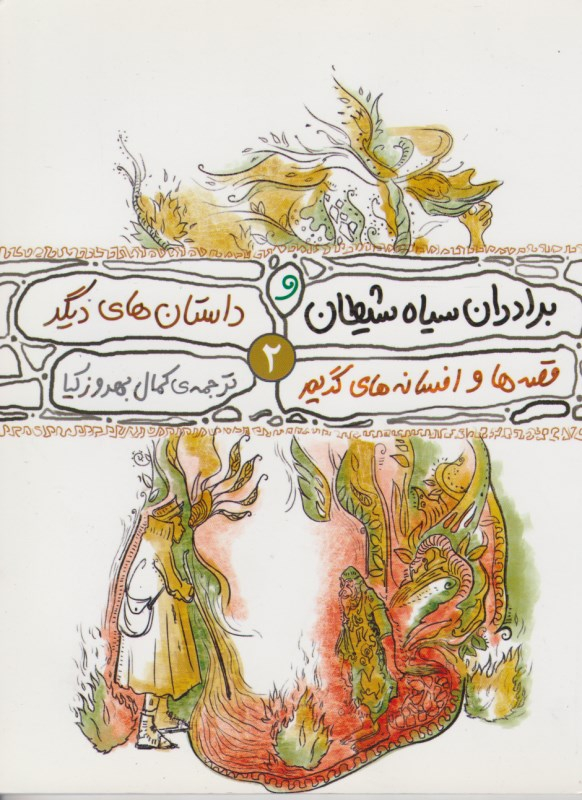 برادران سیاه شیطان
و
داستان های دیگر
۲
قصه ها و افسانه های گریم
ترجمه‌ی کمال بهروزکیا